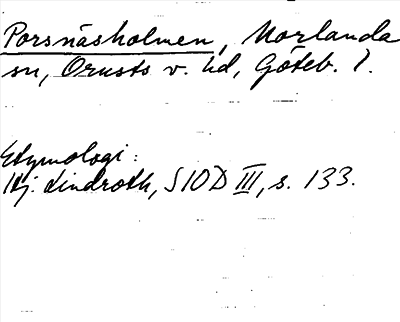 Porsnäsholmen, Morlanda
sn, Orusts v. hd, Göteb. l.
Etymologi:
Hj. Lindroth, SIOD III, s. 133.